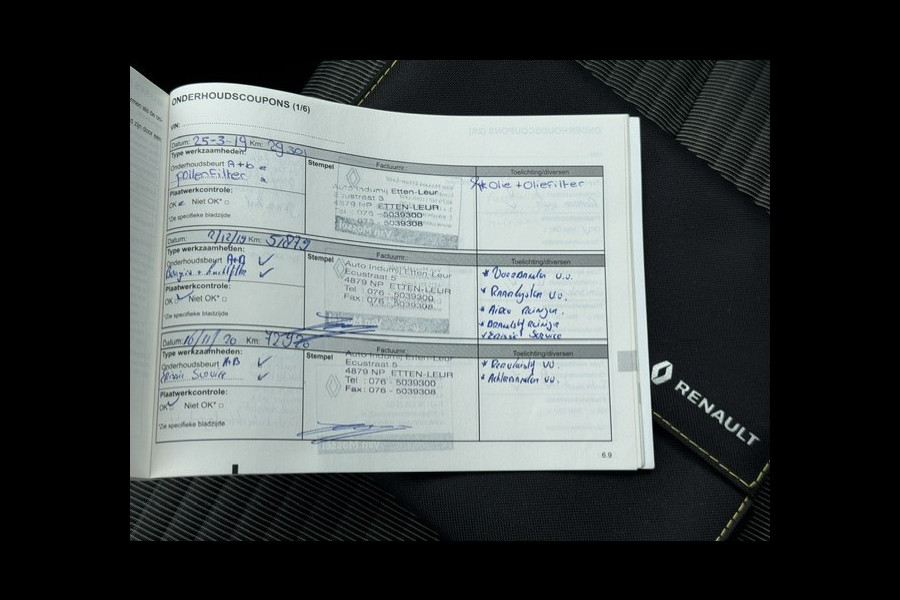 ONDERHOUDSCOUPONS (1/6)
VIN:
Datum: 25-3-19 Km: 29.301
Type werkzaamheden:
Onderhoudsbeurt A+b
pollenfilter
Plaatwerkcontrole:
OK Niet OK*
*Zie specifieke bladzijde
Stempel
Factuurnr.:
Auto Indumij Etten-Leur
Ecustraat 5
4879 NP ETTEN-LEUR
Tel : 076 - 5039300
Fax: 076 - 5039308
Van Mossel
Toelichting/diversen
* Olie + Oliefilter
Datum: 2/12/19 Km: 51879
Type werkzaamheden:
Onderhoudsbeurt A+B
Plaatwerkcontrole:
OK Niet OK*
*Zie specifieke bladzijde
Stempel
Factuurnr.:
Auto Indumij Etten-Leur
Ecustraat 5
4879 NP ETTEN-LEUR
Tel : 076 - 5039300
Fax: 076 - 5039308
Toelichting/diversen
* Voorbanden v.v.
* Airco Reiniger.
* Brandstof Reiniger
Service
Datum: 16/11/20 Km: 72920
Type werkzaamheden:
Onderhoudsbeurt A+B
Service
Plaatwerkcontrole:
OK Niet OK*
*Zie specifieke bladzijde
Stempel
Factuurnr.:
Auto Indumij Etten-Leur
Ecustraat 5
4879 NP ETTEN-LEUR
Tel : 076 - 5039300
Fax: 076 - 5039308
Van Mossel
Toelichting/diversen
* Achterbanden v.v.
6.9
RENAULT